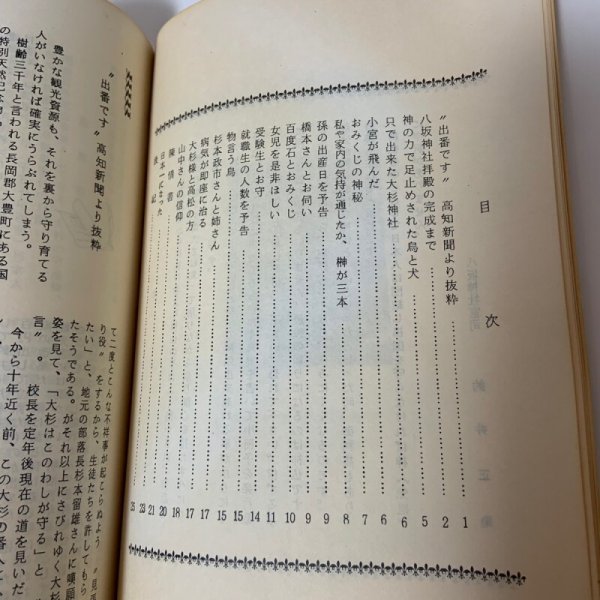 目次
"出番です" 高知新聞より抜粋 1
八坂神社拝殿の完成まで 2
神の力で足止めされた烏と犬 5
只で出来た大杉神社 6
小宮が飛んだ 6
おみくじの神秘 7
私や家内の気持が通じたか、榊が三本 8
孫の出産日を予告 9
橋本さんとお伺い 9
百度石とおみくじ 10
女児を是非ほしい 11
受験生とお守 14
就職生の人数を予告 15
物言う烏 15
杉本政市さんと姉さん 17
病気が即座に治る 17
大杉様と高松の方 18
山中さんの信仰 20
陳情書 21
日本一になった 23
後記 25
"出番です" 高知新聞より抜粋
豊かな観光資源も、それを裏から守り育てる
人がいなければ確実にうらぶれてしまう。
樹齢三千年と言われる長岡郡大豊町にある国
の特別天然記念
て二度とこんな不祥事が起こらぬよう "見張
り役" をするから、生徒たちを許してもら
たい」と、地元の部落長杉本留雄さんに嘆願
たそうである。がそれ以上にさびれゆく大杉
姿を見て、「大杉はこのわしが守る」と
言"。 校長を定年後現在の道を見いだ
今から十年近く前、この大杉の番人